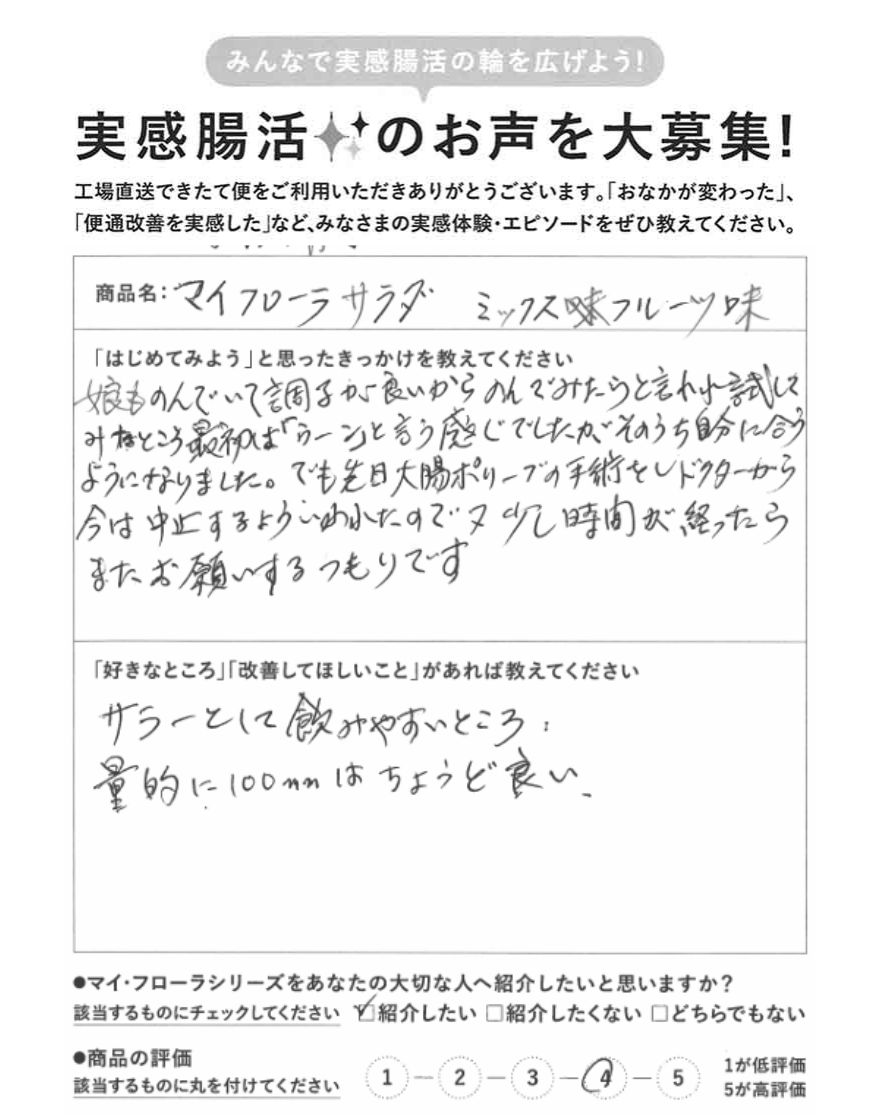 みんなで実感腸活の輪を広げよう!
実感腸活のお声を大募集!
工場直送できたて便をご利用いただきありがとうございます。「おなかが変わった」、
「便通改善を実感した」など、みなさまの実感体験・エピソードをぜひ教えてください。
商品名: マイフローラサラダ ミックス フルーツ味
「はじめてみよう」と思ったきっかけを教えてください
娘ものんでいて調子が良いからのんでみたらと言われ試して
みたところ最初は「うーン」と言う感じでしたが、そのうち自分に合う
ようになりました。でも先日大腸ポリープの手術をしドクターから
今は中止するよういわれたのでヌ少し時間が経ったら
またお願いするつもりです
「好きなところ」「改善してほしいこと」があれば教えてください
サラーとして飲みやすいところ
量的に100はちょうど良い、
●マイ・フローラシリーズをあなたの大切な人へ紹介したいと思いますか?
該当するものにチェックしてください ☑紹介したい □紹介したくない □どちらでもない
●商品の評価
該当するものに丸を付けてください 1 - 2 - 3 - 4 - 5 1が低評価
5が高評価